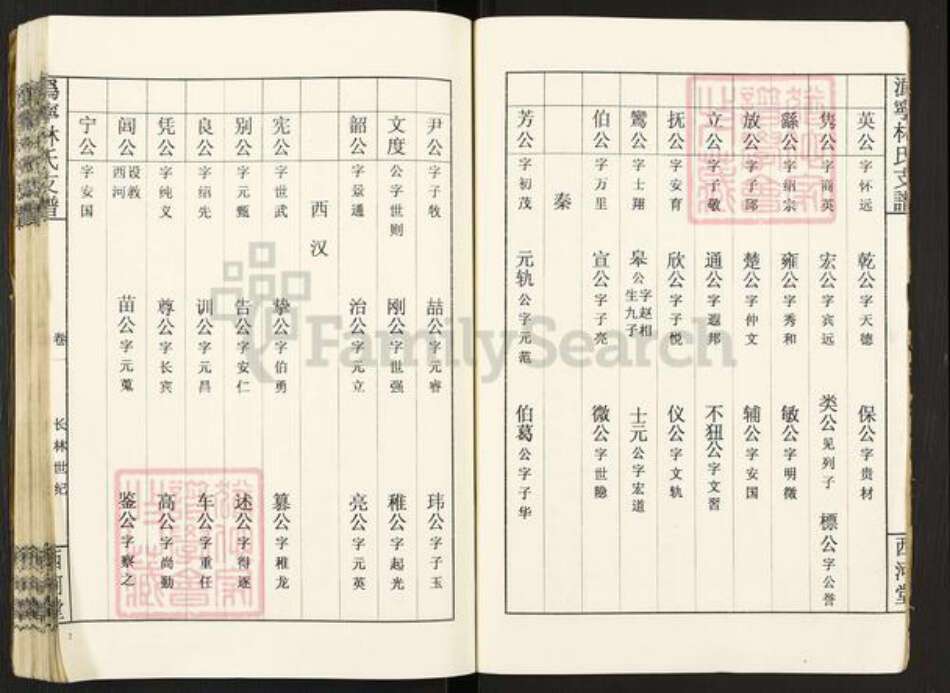 沩宁林氏支谱
西河堂
英公字怀远 乾公字天德 保公字贵材
隽公字商英 宏公字宾远 类公见列子 標公字公誉
繇公字绍宗 雍公字秀和 敏公字明微
放公字子郎 楚公字仲文 辅公字安国
立公字子敬 通公字遐邦 不狃公字文習
抚公字安育 欣公字子悦 仪公字文轨
鸾公字士翔 皋公字赵相生九子 士元公字宏道
伯公字万里 宣公字子亮 微公字世隐
秦
芳公字初茂 元轨公字元范 伯葛公字子华
尹公字子牧 喆公字元睿 玮公字子玉
文度公字世则 刚公字世强 稚公字起光
韶公字景通 治公字元立 亮公字元英
西汉
宪公字世武 挚公字伯勇 纂公字稚龙
别公字元甄 告公字安仁 述公字得逐
良公字绍先 训公字元昌 车公字重任
凭公字纯义 尊公字长宾 高公字尚勤
闾公设教西河 苗公字元蒐 鉴公字察之
宁公字安国
沩宁林氏支谱
卷一
长林世纪
西河堂
FamilySearch